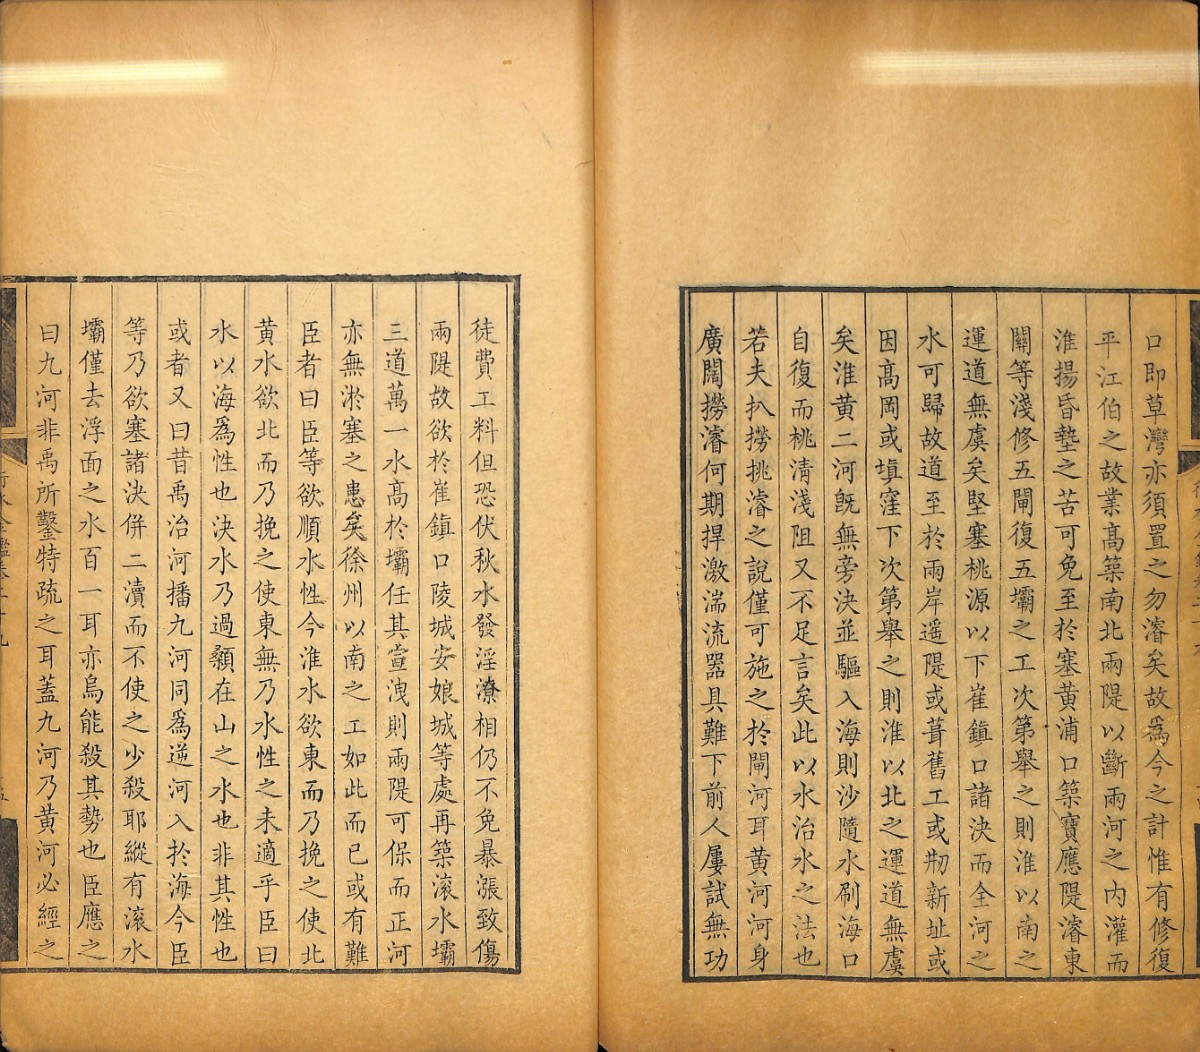 口即草灣亦須置之勿濬矣故爲今之計惟有修復
平江伯之故業高築南北兩隄以斷兩河之内灌而
淮揚昏墊之苦可免至於塞黄浦口築寶應隄濬東
關等淺修五閘復五壩之工次第舉之則淮以南之
運道無虞矣堅塞桃源以下崔鎮口諸決而全河之
水可歸故道至於兩岸遥隄或葺舊工或刱新址或
因高岡或塡窪下次第舉之則淮以北之運道無虞
矣淮黄二河旣無旁決並驅入海則沙隨水刷海口
自復而桃清淺阻又不足言矣此以水治水之法也
若夫扒撈挑濬之說僅可施之於閘河耳黄河河身
廣闊撈濬何期捍激湍流器具難下前人屢試無功
徒費工料但恐伏秋水發淫潦相仍不免暴漲致傷
兩隄故欲於崔鎮口陵城安娘城等處再築滚水壩
三道萬一水高於壩任其宣洩則兩隄可保而正河
亦無淤塞之患矣徐州以南之工如此而已或有難
臣者曰臣等欲順水性今淮水欲東而乃挽之使北
黄水欲北而乃挽之使東無乃水性之未適乎臣曰
水以海爲性也決水乃過顙在山之水也非其性也
或者又曰昔禹治河播九河同爲逆河入於海今臣
等乃欲塞諸決併二瀆而不使之少殺耶縱有滚水
壩僅去浮面之水百一耳亦烏能殺其勢也臣應之
曰九河非禹所鑿特疏之耳蓋九河乃黄河必經之